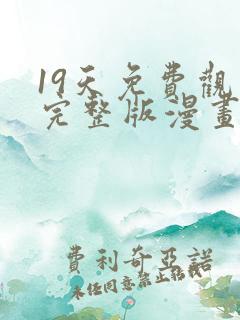 19天免費觀
完整版漫畫
費利奇亞諾
未經同意禁止轉載